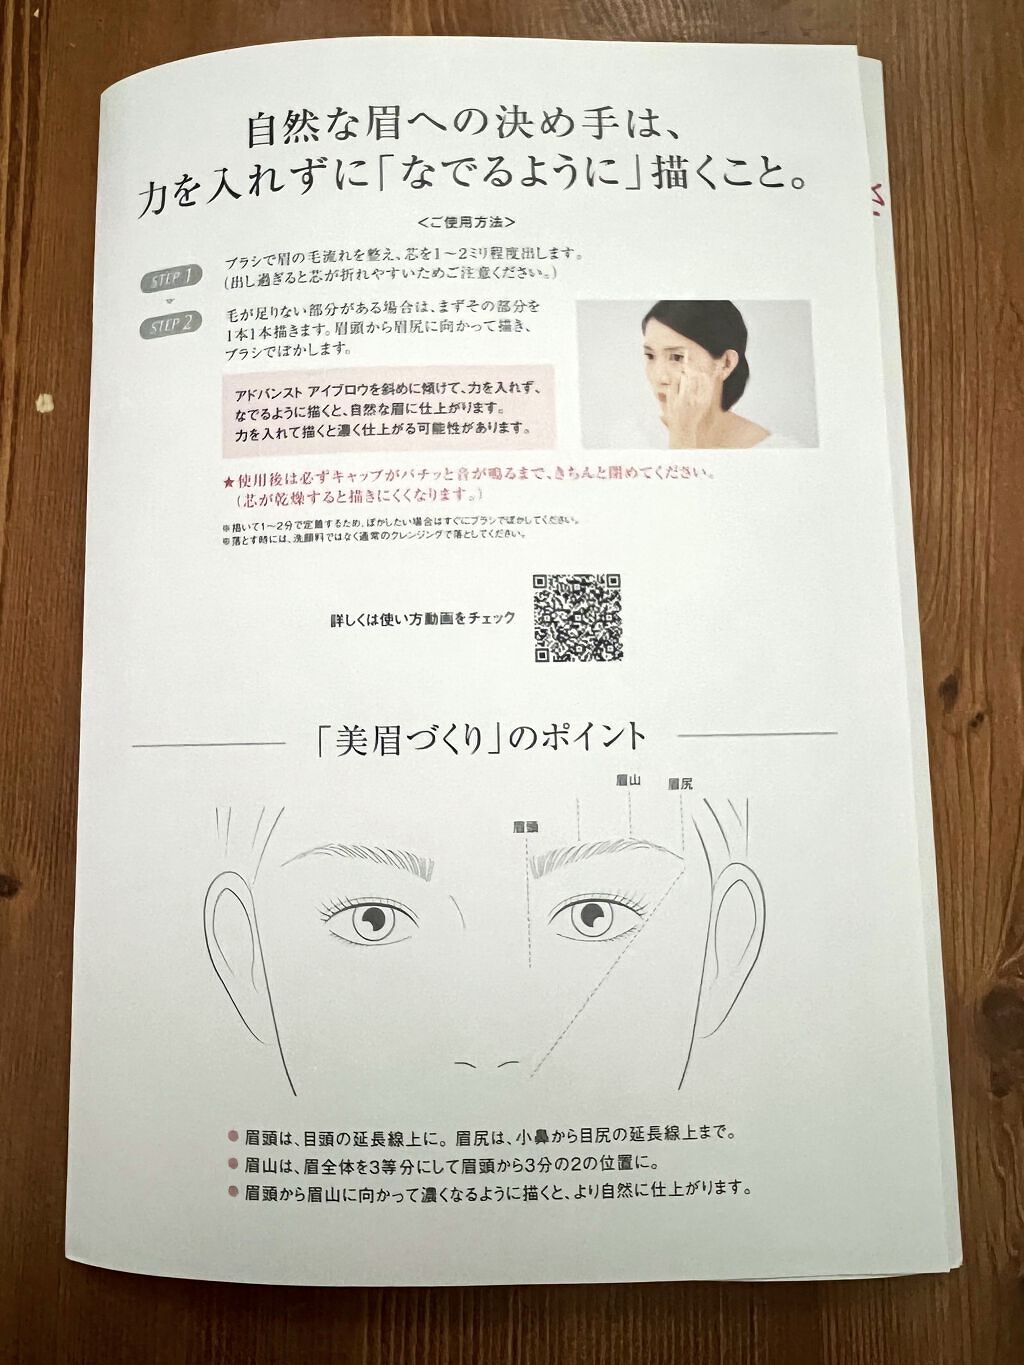 自然な眉への決め手は、
力を入れずに「なでるように」描くこと。
＜ご使用方法＞
STEP 1
ブラシで眉の毛流れを整え、芯を1〜2ミリ程度出します。
(出し過ぎると芯が折れやすいためご注意ください。)
STEP 2
毛が足りない部分がある場合は、まずその部分を
1本1本描きます。眉頭から眉尻に向かって描き、
ブラシでぼかします。
アドバンスト アイブロウを斜めに傾けて、力を入れず、
なでるように描くと、自然な眉に仕上がります。
力を入れて描くと濃く仕上がる可能性があります。
★使用後は必ずキャップがパチッと音が鳴るまで、きちんと閉めてください。
(芯が乾燥すると描きにくくなります。)
※描いて1〜2分で定着するため、ぼかしたい場合はすぐにブラシでぼかしてください。
※落とす時には、洗顔料ではなく通常のクレンジングで落としてください。
詳しくは使い方動画をチェック
「美眉づくり」のポイント
眉山
眉尻
眉頭
●眉頭は、目頭の延長線上に。眉尻は、小鼻から目尻の延長線上まで。
●眉山は、眉全体を3等分にして眉頭から3分の2の位置に。
●眉頭から眉山に向かって濃くなるように描くと、より自然に仕上がります。